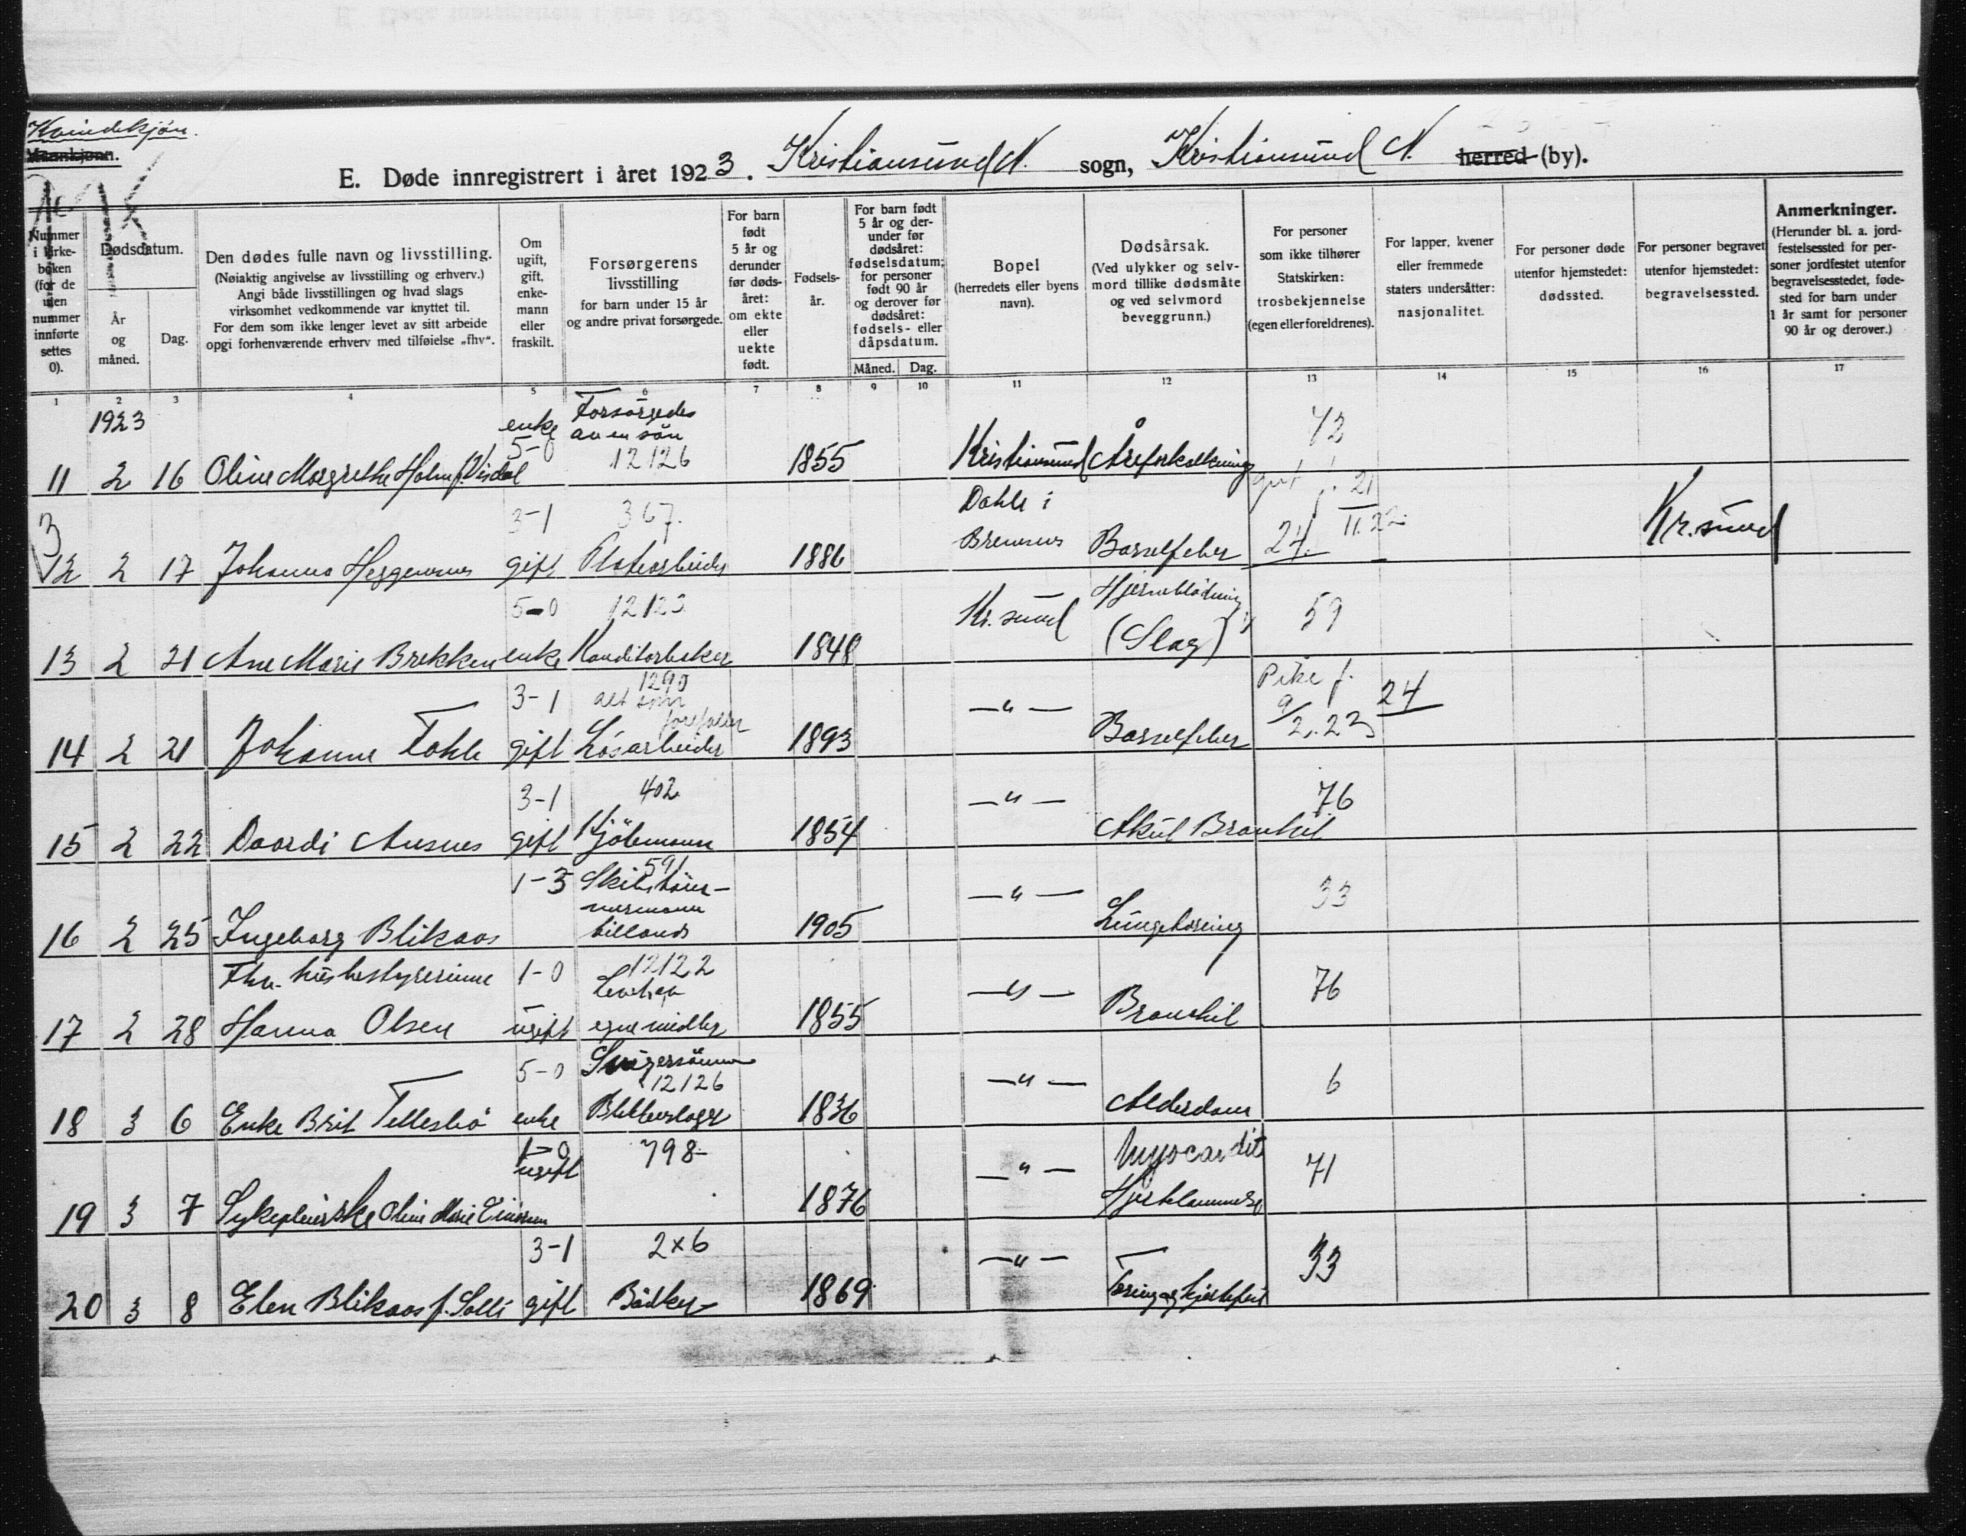 Kvindekjøn.
Mannkjønn.
E. Døde innregistrert i året 1923. Kristiansund N. sogn, Kristiansund N. herred (by).
Nummer i kirke-boken (for de uten nummer innførte settes 0).
Dødsdatum.
År og måned.
Dag.
Den dødes fulle navn og livsstilling.
(Nøiaktig angivelse av livsstilling og erhverv.)
Angi både livsstillingen og hvad slags
virksomhet vedkommende var knyttet til.
For dem som ikke lenger levet av sitt arbeide
opgi forhenværende erhverv med tilføielse „fhv“.
Om ugift, gift, enke-mann eller fraskilt.
Forsørgerens livsstilling
for barn under 15 år
og andre privat forsørgede.
For barn født 5 år og derunder før døds-året: om ekte eller uekte født.
Fødsels-år.
For barn født 5 år og der-under før dødsåret: fødselsdatum; for personer født 90 år og derover før dødsåret: fødsels- eller dåpsdatum.
Måned. Dag.
Bopel
(herredets eller byens navn).
Dødsårsak.
(Ved ulykker og selv-mord tillike dødsmåte og ved selvmord beveggrunn.)
For personer som ikke tilhører Statskirken: trosbekjennelse (egen eller foreldrenes).
For lapper, kvener eller fremmede staters undersåtter: nasjonalitet.
For personer døde utenfor hjemstedet: dødssted.
For personer begravet utenfor hjemstedet: begravelsessted.
Anmerkninger.
(Herunder bl. a. jord-festelsessted for per-soner jordfestet utenfor begravelsesstedet, føde-sted for barn under 1 år samt for personer 90 år og derover.)
1 2 3 4 5 6 7 8 9 10 11 12 13 14 15 16 17
1923
enke Forsørgedes av en søn
5-0 12126 73
11 2 16 Oline Margrethe Holm f. Visdal 1855 Kristiansund Åreforkalkning
3 3-1 367. Dahle i Bremsnes 21/11.22. Kr.sund
12 2 17 Johanna Heggernes gift 1886 Barselfeber 24.
5-0 12123 Kr. sund Hjerneblødning 59
13 2 21 Ane Marie Brekken enke Konditorbaker 1848 (Slag)
3-1 1290 alt som forefaller —„— Pike f. 9/2.23 24
14 2 21 Johanne Fahle gift Løsarbeider 1893 Barselfeber
3-1 402 —„— 76
15 2 22 gift Kjøbmann 1854 Akut Bronkit
1-3 591 —„— 33
16 2 25 Ingeborg Blikaas 1905 Lungetæring
Fhv. husbestyrerinne 1-0 12122 Lever av —„— 76
17 2 28 Hanna Olsen ugift egne midler 1855 Bronkit
5-0 Svigersønn 12126 —„— 6
18 3 6 Enke Brit enke Blikkenslager 1836 Alderdom
1-0 ugift 798- —„— Myocardit 71
19 3 7 Sykepleierske Oline Marie 1876
3-1 2×6 —„— 33
20 3 8 Elen Blikaas f. Solli gift Bødker 1869 Tæring og hjertefeil